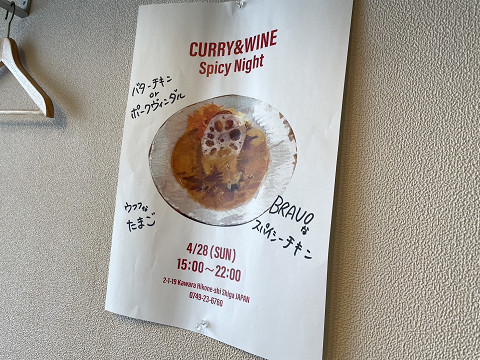 CURRY&WINE
Spicy Night
バターチキン
or
ポークヴィンダル
ウフフな
たまご
BRAVO
な
スパイシーチキン
4/28 (SUN)
15:00〜22:00
2-1-19 Kawara Hikone-shi Shiga JAPAN
0749-23-6760